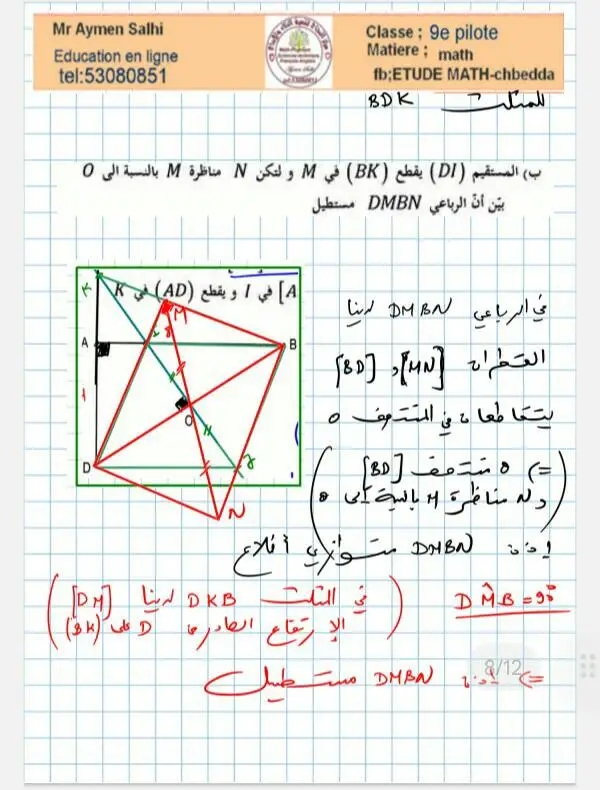 Mr Aymen Salhi
Education en ligne
tel:53080851
Classe ; 9e pilote
Matiere ; math
fb;ETUDE MATH-chbedda
للمثلث BDK
ب) المستقيم (DI) يقطع (BK) في M و لتكن N مناظرة M بالنسبة الى O
بيّن أنّ الرباعي DMBN مستطيل
A] في I و يقطع (AD) في K
K
M
A
B
O
D
J
N
في الرباعي DMBN لدينا
القطران [MN] و [BD]
يتقاطعان في المنتصف O
(=> O منتصف [BD]
و N مناظرة M بالنسبة إلى O)
إذن DMBN متوازي أضلاع
(في المثلث DKB لدينا [DM]
الارتفاع الصادر من D على (BK))
DM̂B = 90°
=> إذن DMBN مستطيل
8/12